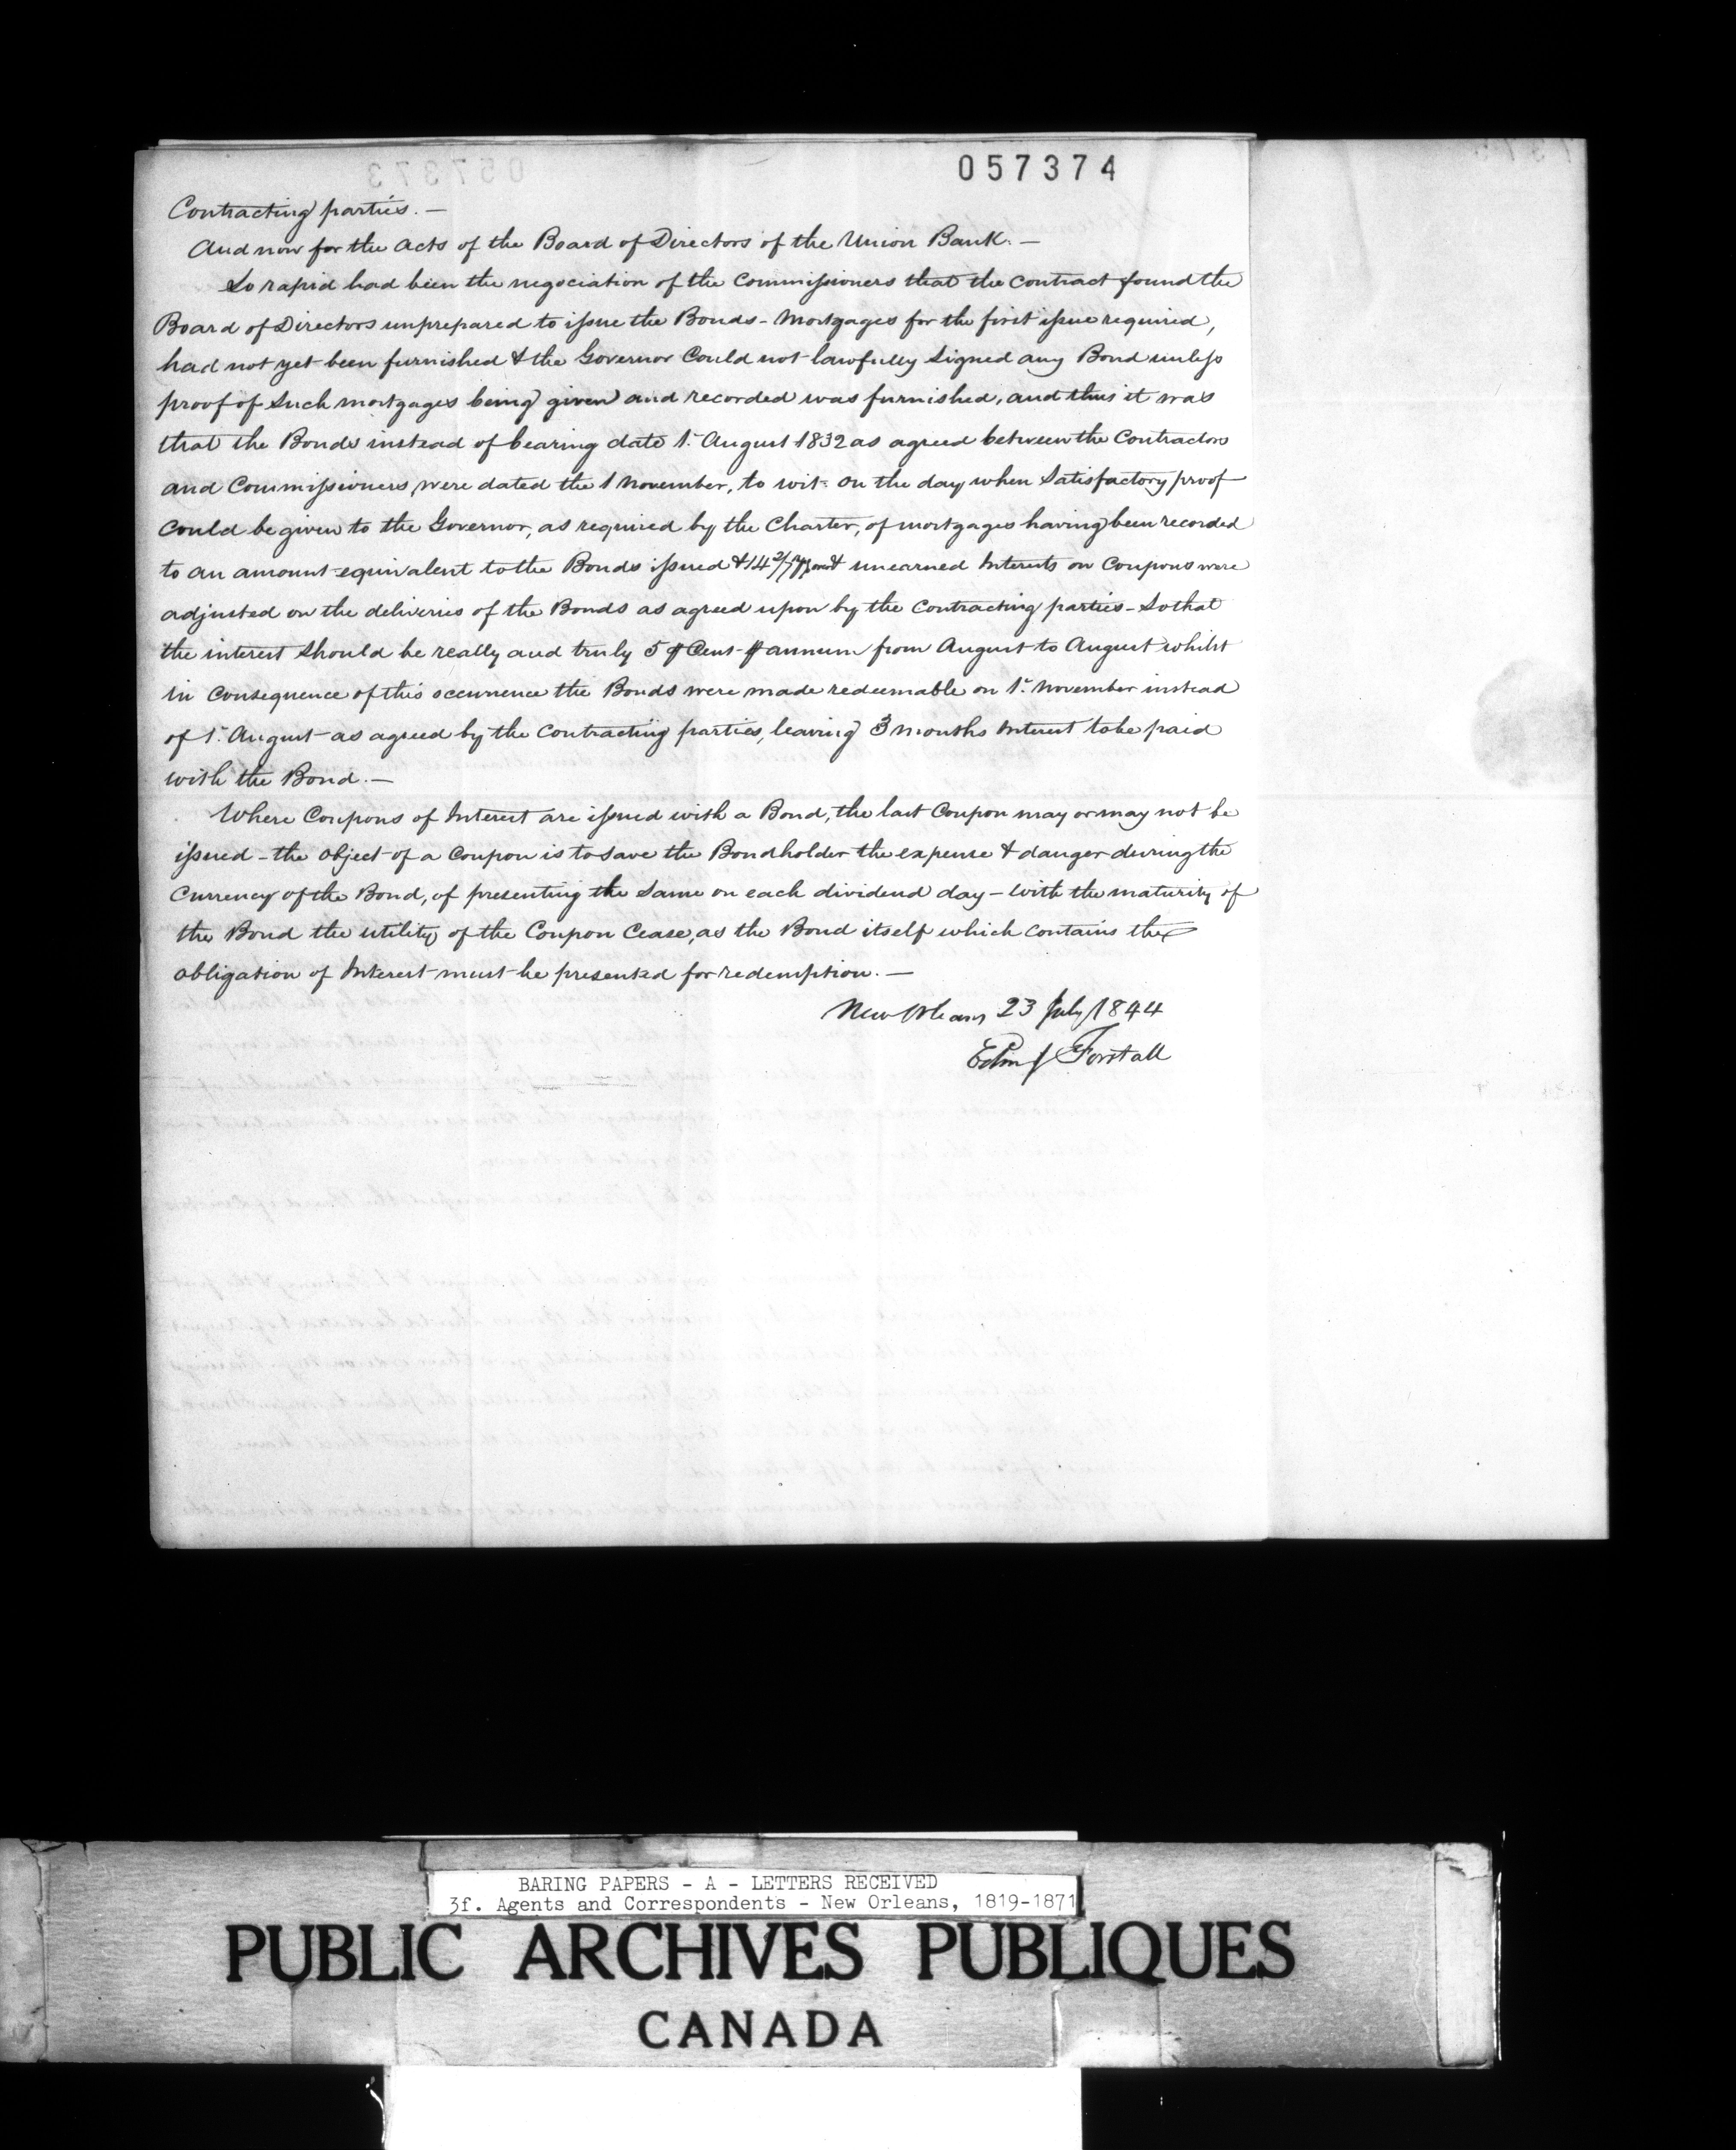 057374
Contracting parties. —
And now for the Acts of the Board of Directors of the Union Bank. —
So rapid had been the negociation of the Commissioners that the Contract found the
Board of Directors unprepared to issue the Bonds - Mortgages for the first issue required,
had not yet been furnished & the Governor Could not lawfully Signed any Bond unless
proof of Such mortgages being given and recorded was furnished, and thus it was
that the Bonds instead of bearing date 1st August 1832 as agreed between the Contractors
and Commissioners, were dated the 1 November, to wit: on the day when Satisfactory proof
Could be given to the Governor, as required by the Charter, of mortgages having been recorded
to an amount equivalent to the Bonds issued & 14 2/7 unearned Interests on Coupons were
adjusted on the deliveries of the Bonds as agreed upon by the Contracting parties - So that
the interest Should be really and truly 5 ℔ Cent ℔ annum from August to August whilst
in Consequence of this occurrence the Bonds were made redeemable on 1st November instead
of 1st August as agreed by the Contracting parties, leaving 3 months Interest to be paid
with the Bond. —
Where Coupons of Interest are issued with a Bond, the last Coupon may or may not be
issued - the object of a Coupon is to save the Bondholder the expense & danger during the
Currency of the Bond, of presenting the Same on each dividend day - With the maturity of
the Bond the utility of the Coupon Cease, as the Bond itself which contains the
obligation of Interest must be presented for redemption. —
New Orleans 23 July 1844
Edm J Forstall
BARING PAPERS - A - LETTERS RECEIVED
3f. Agents and Correspondents - New Orleans, 1819-1871
PUBLIC ARCHIVES PUBLIQUES
CANADA